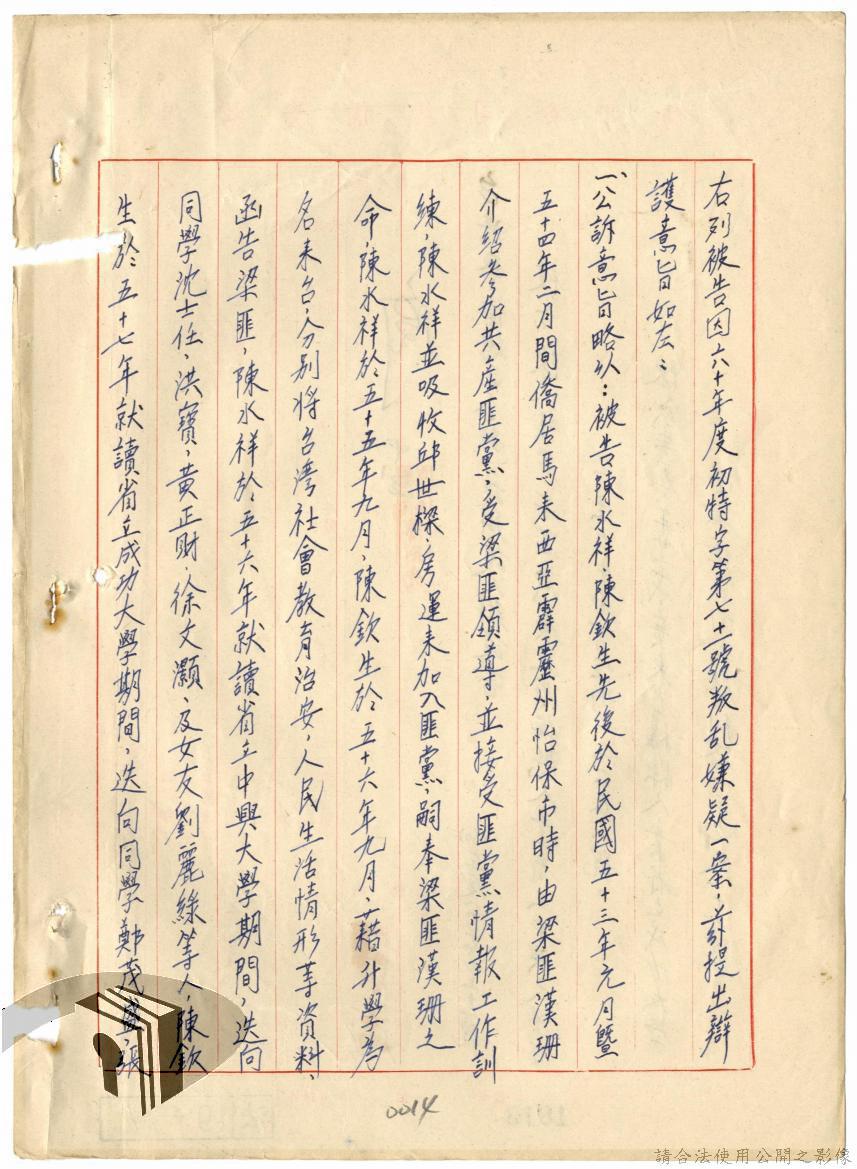 右列被告因六十年度初特字第七十一號叛乱嫌疑一案,茲提出辯
護意旨如左:
一、公訴意旨略以:被告陳水祥、陳欽生先後於民國五十三年元月暨
五十四年二月間僑居馬来西亞霹靂州怡保市時,由梁匪漢珊
介紹參加共產匪黨,受梁匪領導,並接受匪黨情報工作訓
練,陳水祥並吸收邱世樑,房運来加入匪黨,嗣奉梁匪漢珊之
命,陳水祥於五十五年九月,陳欽生於五十六年九月,藉升學為
名来台,分別將台灣社會教育治安,人民生活情形等資料、
函告梁匪,陳水祥於五十六年就讀省立中興大學期間,迭向
同學沈士任,洪寶,黃正財,徐文灝、及女友劉麗絲等人,陳欽
生於五十七年就讀省立成功大學期間,迭向同學鄭茂盛,張
0014
請合法使用公開之影像